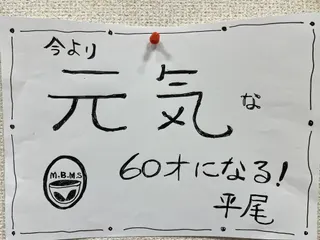 今より
元気な
M.B.M.S
60才になる!
平尾